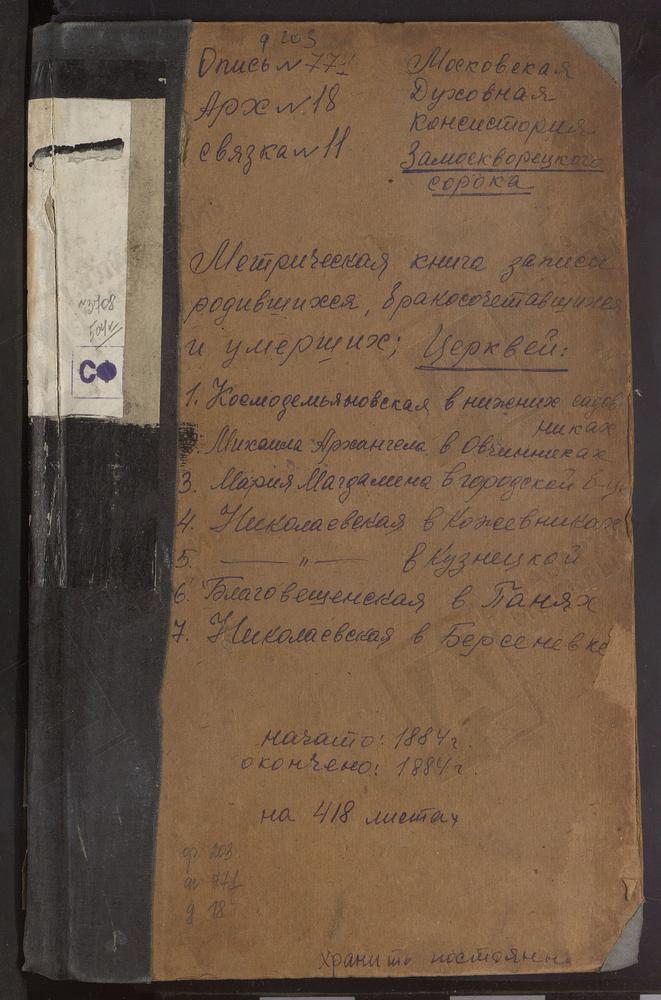 ф 203
Опись № 771
Арх № 18
связка № 11
Московская
Духовная
Консистория
Замоскворецкого
сорока
Метрическая книга записи
родившихся, бракосочетавшихся
и умерших; Церквей:
1. Космодемьяновская в нижних садов
никах
2. Михаила Архангела в Овчинниках
3. Мария Магдалина в городской б-це
4. Николаевская в Кожевниках
5. —— " —— в Кузнецкой
6. Благовещенская в Панях
7. Николаевская в Берсеневке
начато: 1884 г.
окончено: 1884 г.
на 418 листах
ф 203
оп 771
д 18
хранить постоянн
№3708
СФ